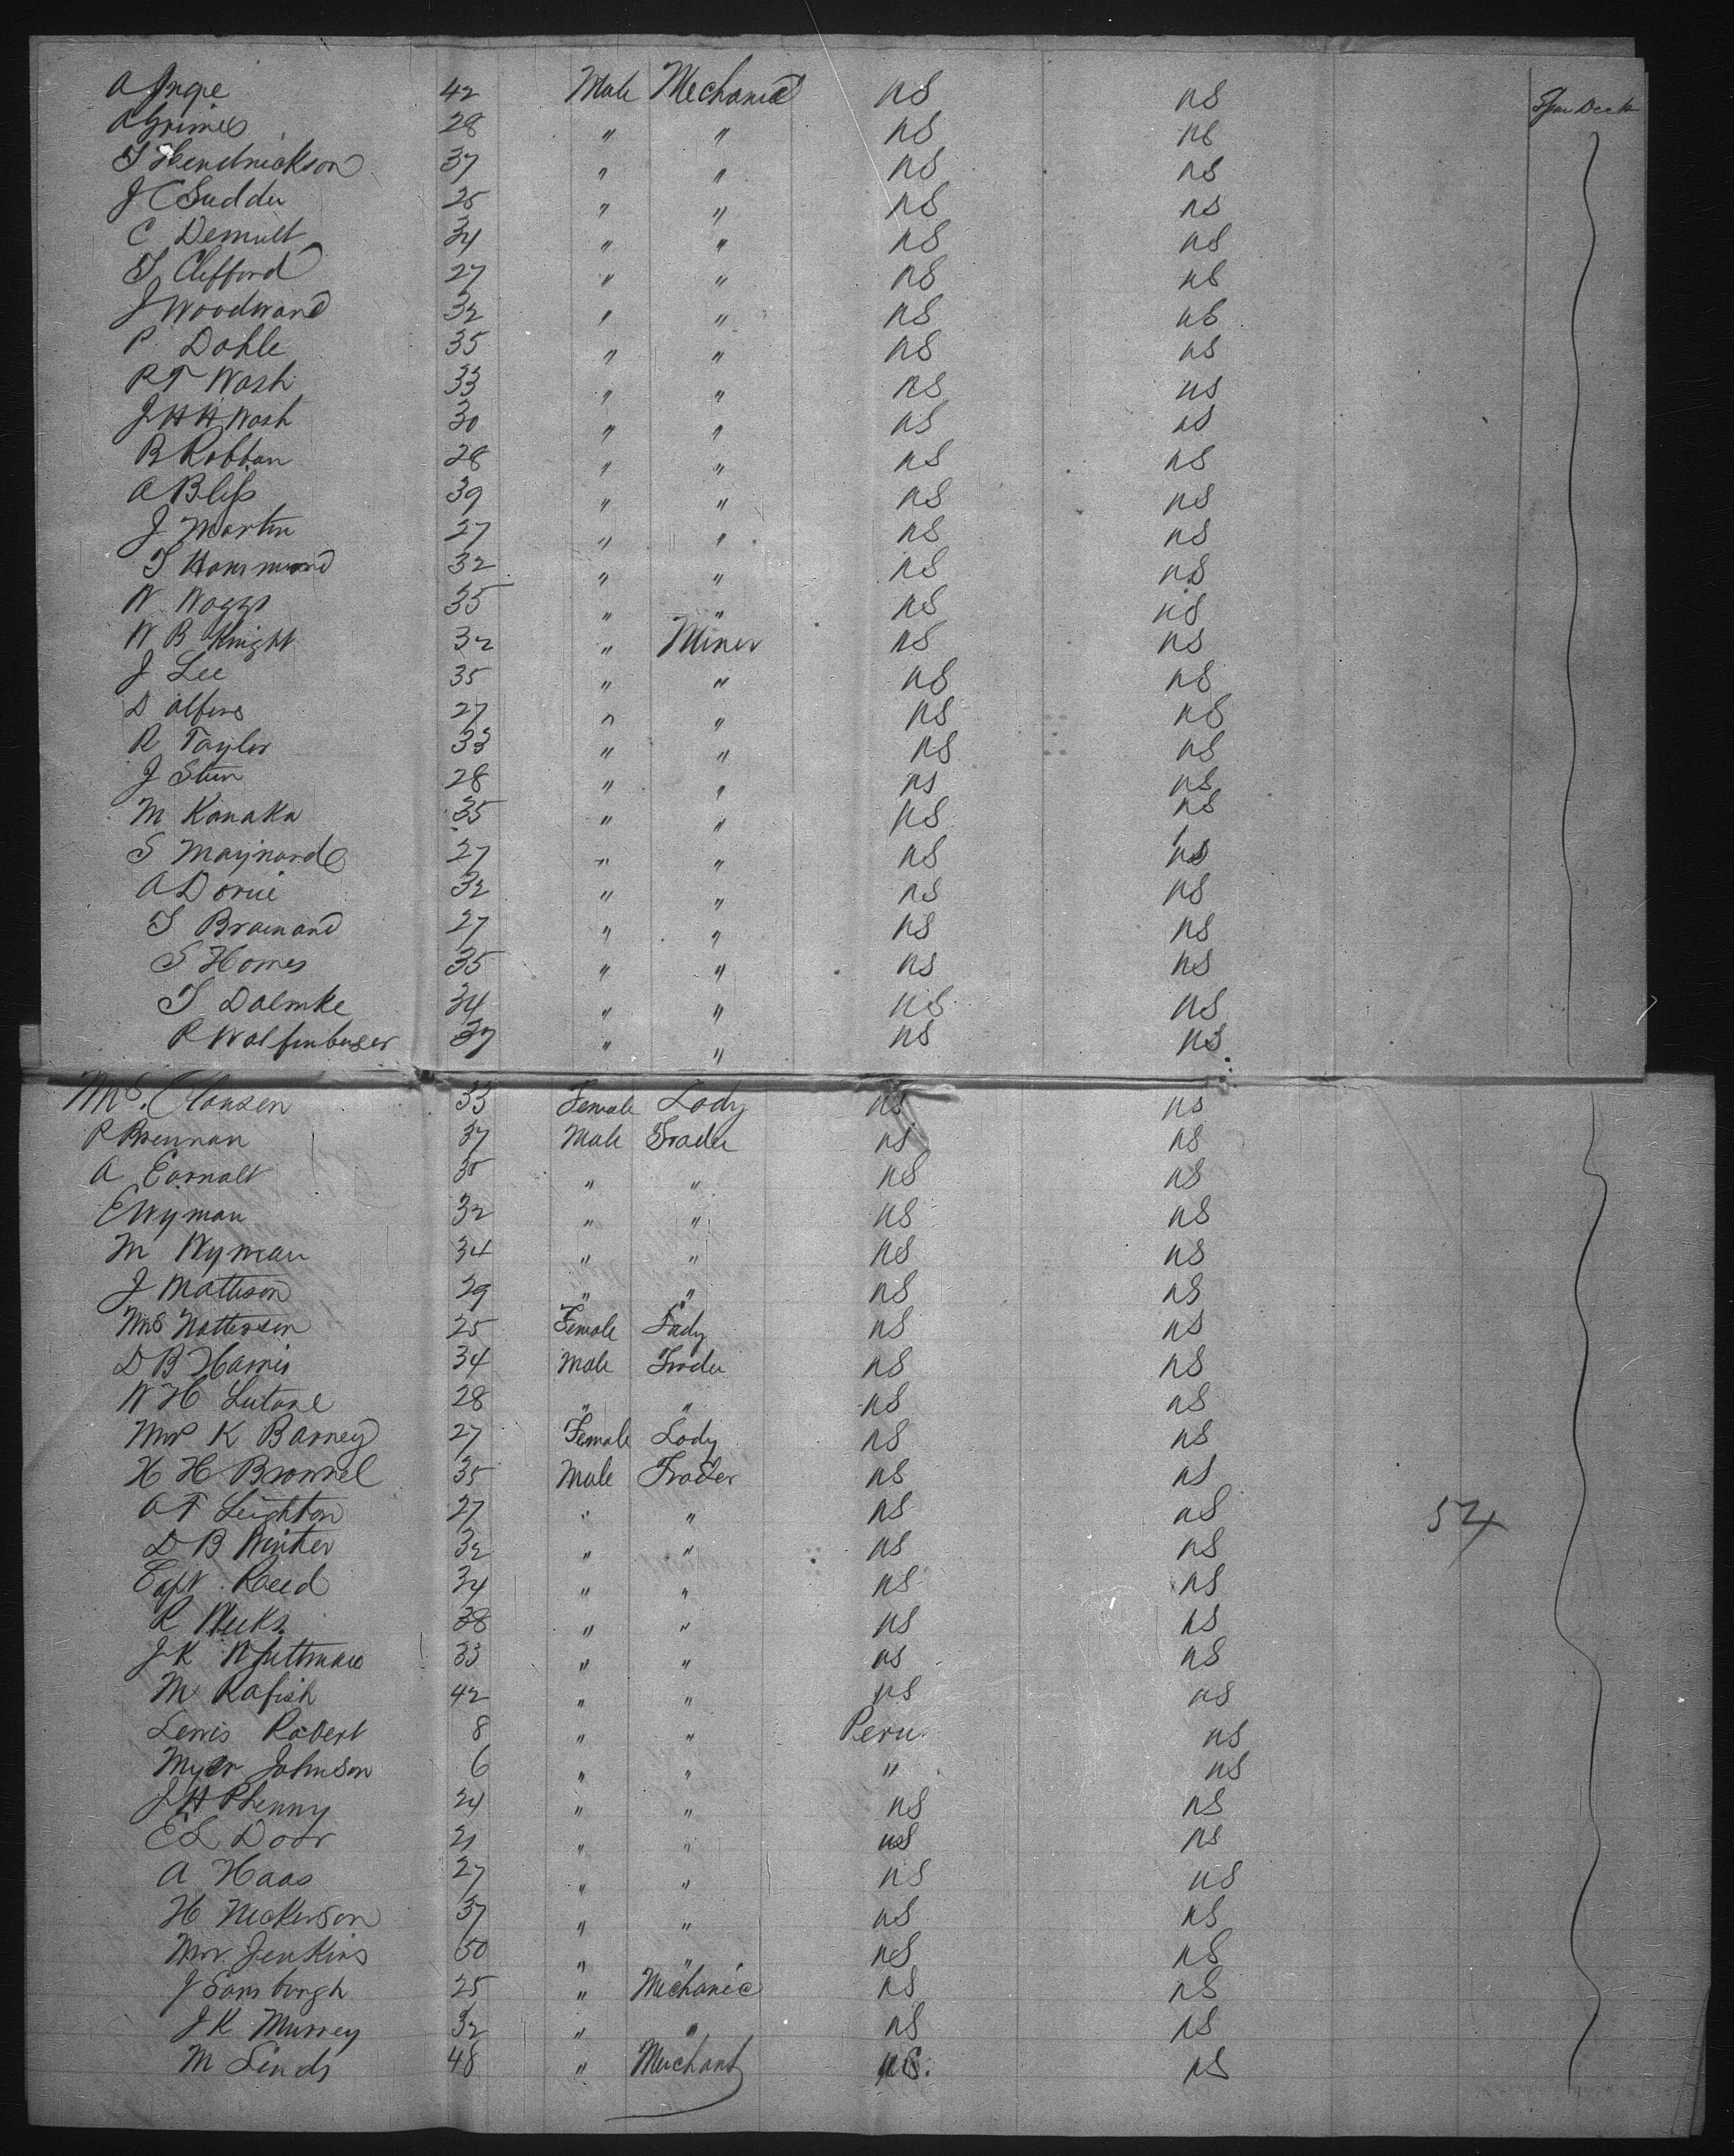 A Inge 42 Male Mechanic US US Spar Deck
A Grimes 28 " " US US
T Hendrickson 37 " " US US
J C Sudder 25 " " US US
C Demult 34 " " US US
T Clifford 27 " " US US
J Woodward 32 " " US US
P Dohle 35 " " US US
R T Wash 33 " " US US
J H H Wash 30 " " US US
B Robban 28 " " US US
A Bliss 39 " " US US
J Martin 27 " " US US
T Hammond 32 " " US US
W Waggs 35 " " US US
W B Knight 32 " Miner US US
J Lee 35 " " US US
D Alfers 27 " " US US
R Taylor 33 " " US US
J Stern 28 " " US US
M Kanaka 35 " " US US
S Maynard 27 " " US US
A Dorue 32 " " US US
T Brainard 27 " " US US
S Homes 35 " " US US
T Dalmke 34 " " US US
R Wolfenberger 37 " " US US
Mrs. Clausen 33 Female Lady US US
P Brennan 37 Male Trader US US
A Earnalt 35 " " US US
E Wyman 32 " " US US
M Wyman 34 " " US US
J Matteson 29 " " US US
Mrs Natterson 25 Female Lady US US
D B Harris 34 Male Trader US US
W H Lutane 28 " " US US
Mrs K Barney 27 Female Lady US US
H H Brownel 35 Male Trader US US
A T Leighton 27 " " US US 54
D B Winter 32 " " US US
Capt. Reed 34 " " US US
R Weeks 38 " " US US
J K Whittman 33 " " US US
M Rafish 42 " " US US
Lewis Robert 8 " " Peru US
Myer Johnson 6 " " " US
J H Phenny 24 " " US US
E L Door 21 " " US US
A Haas 27 " " US US
H Neckerson 37 " " US US
Mr. Jenkins 50 " " US US
J Sansburgh 25 " Mechanic US US
J K Murrey 32 " " US US
M Linds 48 " Merchant US. US